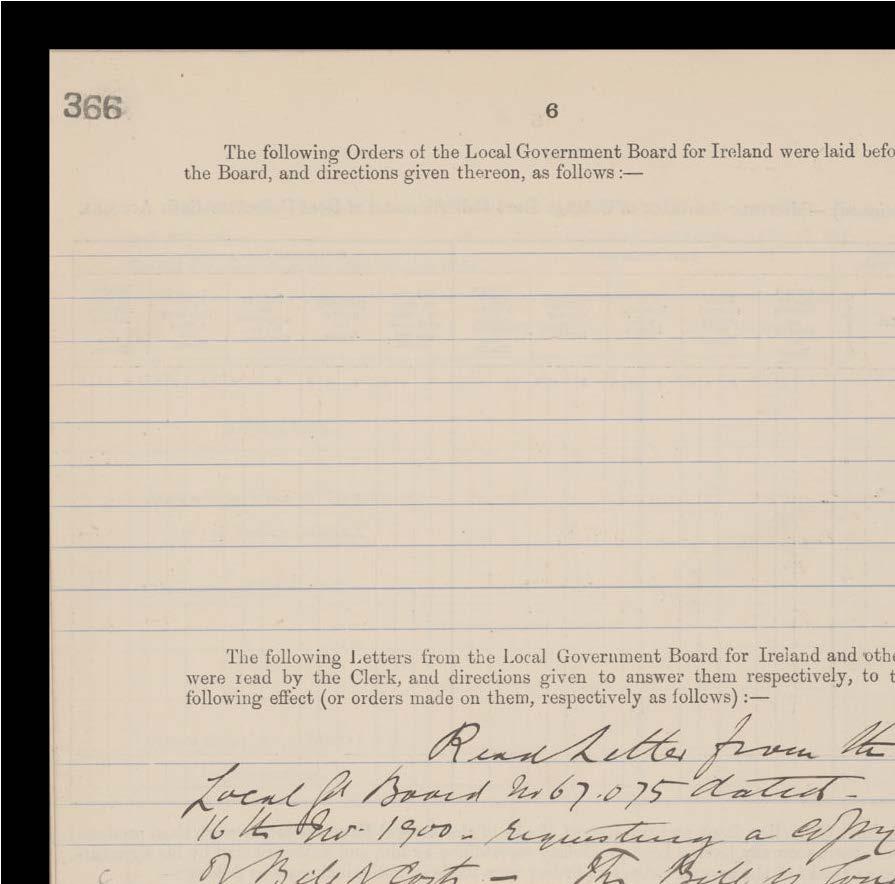 366
6
The following Orders of the Local Government Board for Ireland were laid befo
the Board, and directions given thereon, as follows :—
The following Letters from the Local Government Board for Ireland and othe
were read by the Clerk, and directions given to answer them respectively, to t
following effect (or orders made on them, respectively as follows) :—
Read Letter from the
Local Gt Board No 67.075 dated -
16th Nov. 1900 - requesting a copy
of Bill of Costs — The Bill is